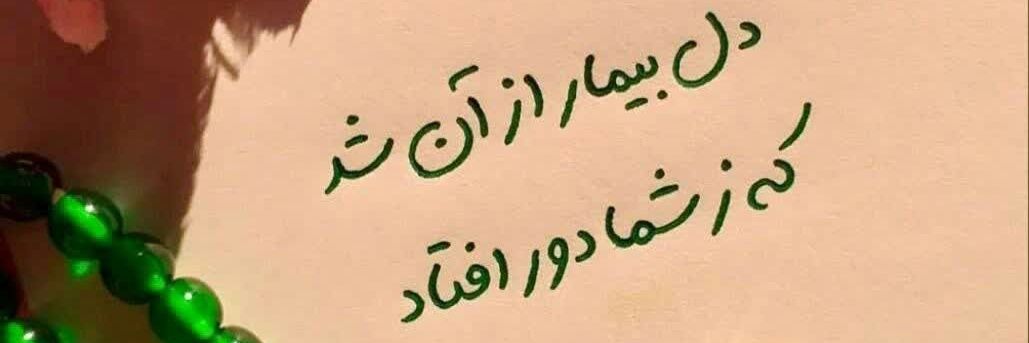 دل بیمار از آن شد
که ز شما دور افتاد